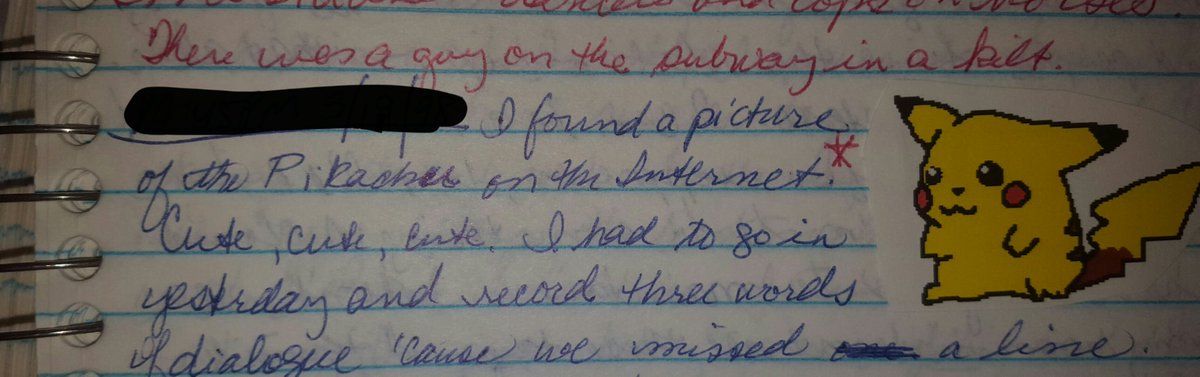 and cops on horses.
There was a guy on the subway in a kilt.
I found a picture
of the Pikachu on the Internet.*
Cute, cute, cute. I had to go in
yesterday and record three words
of dialogue 'cause we missed a line.